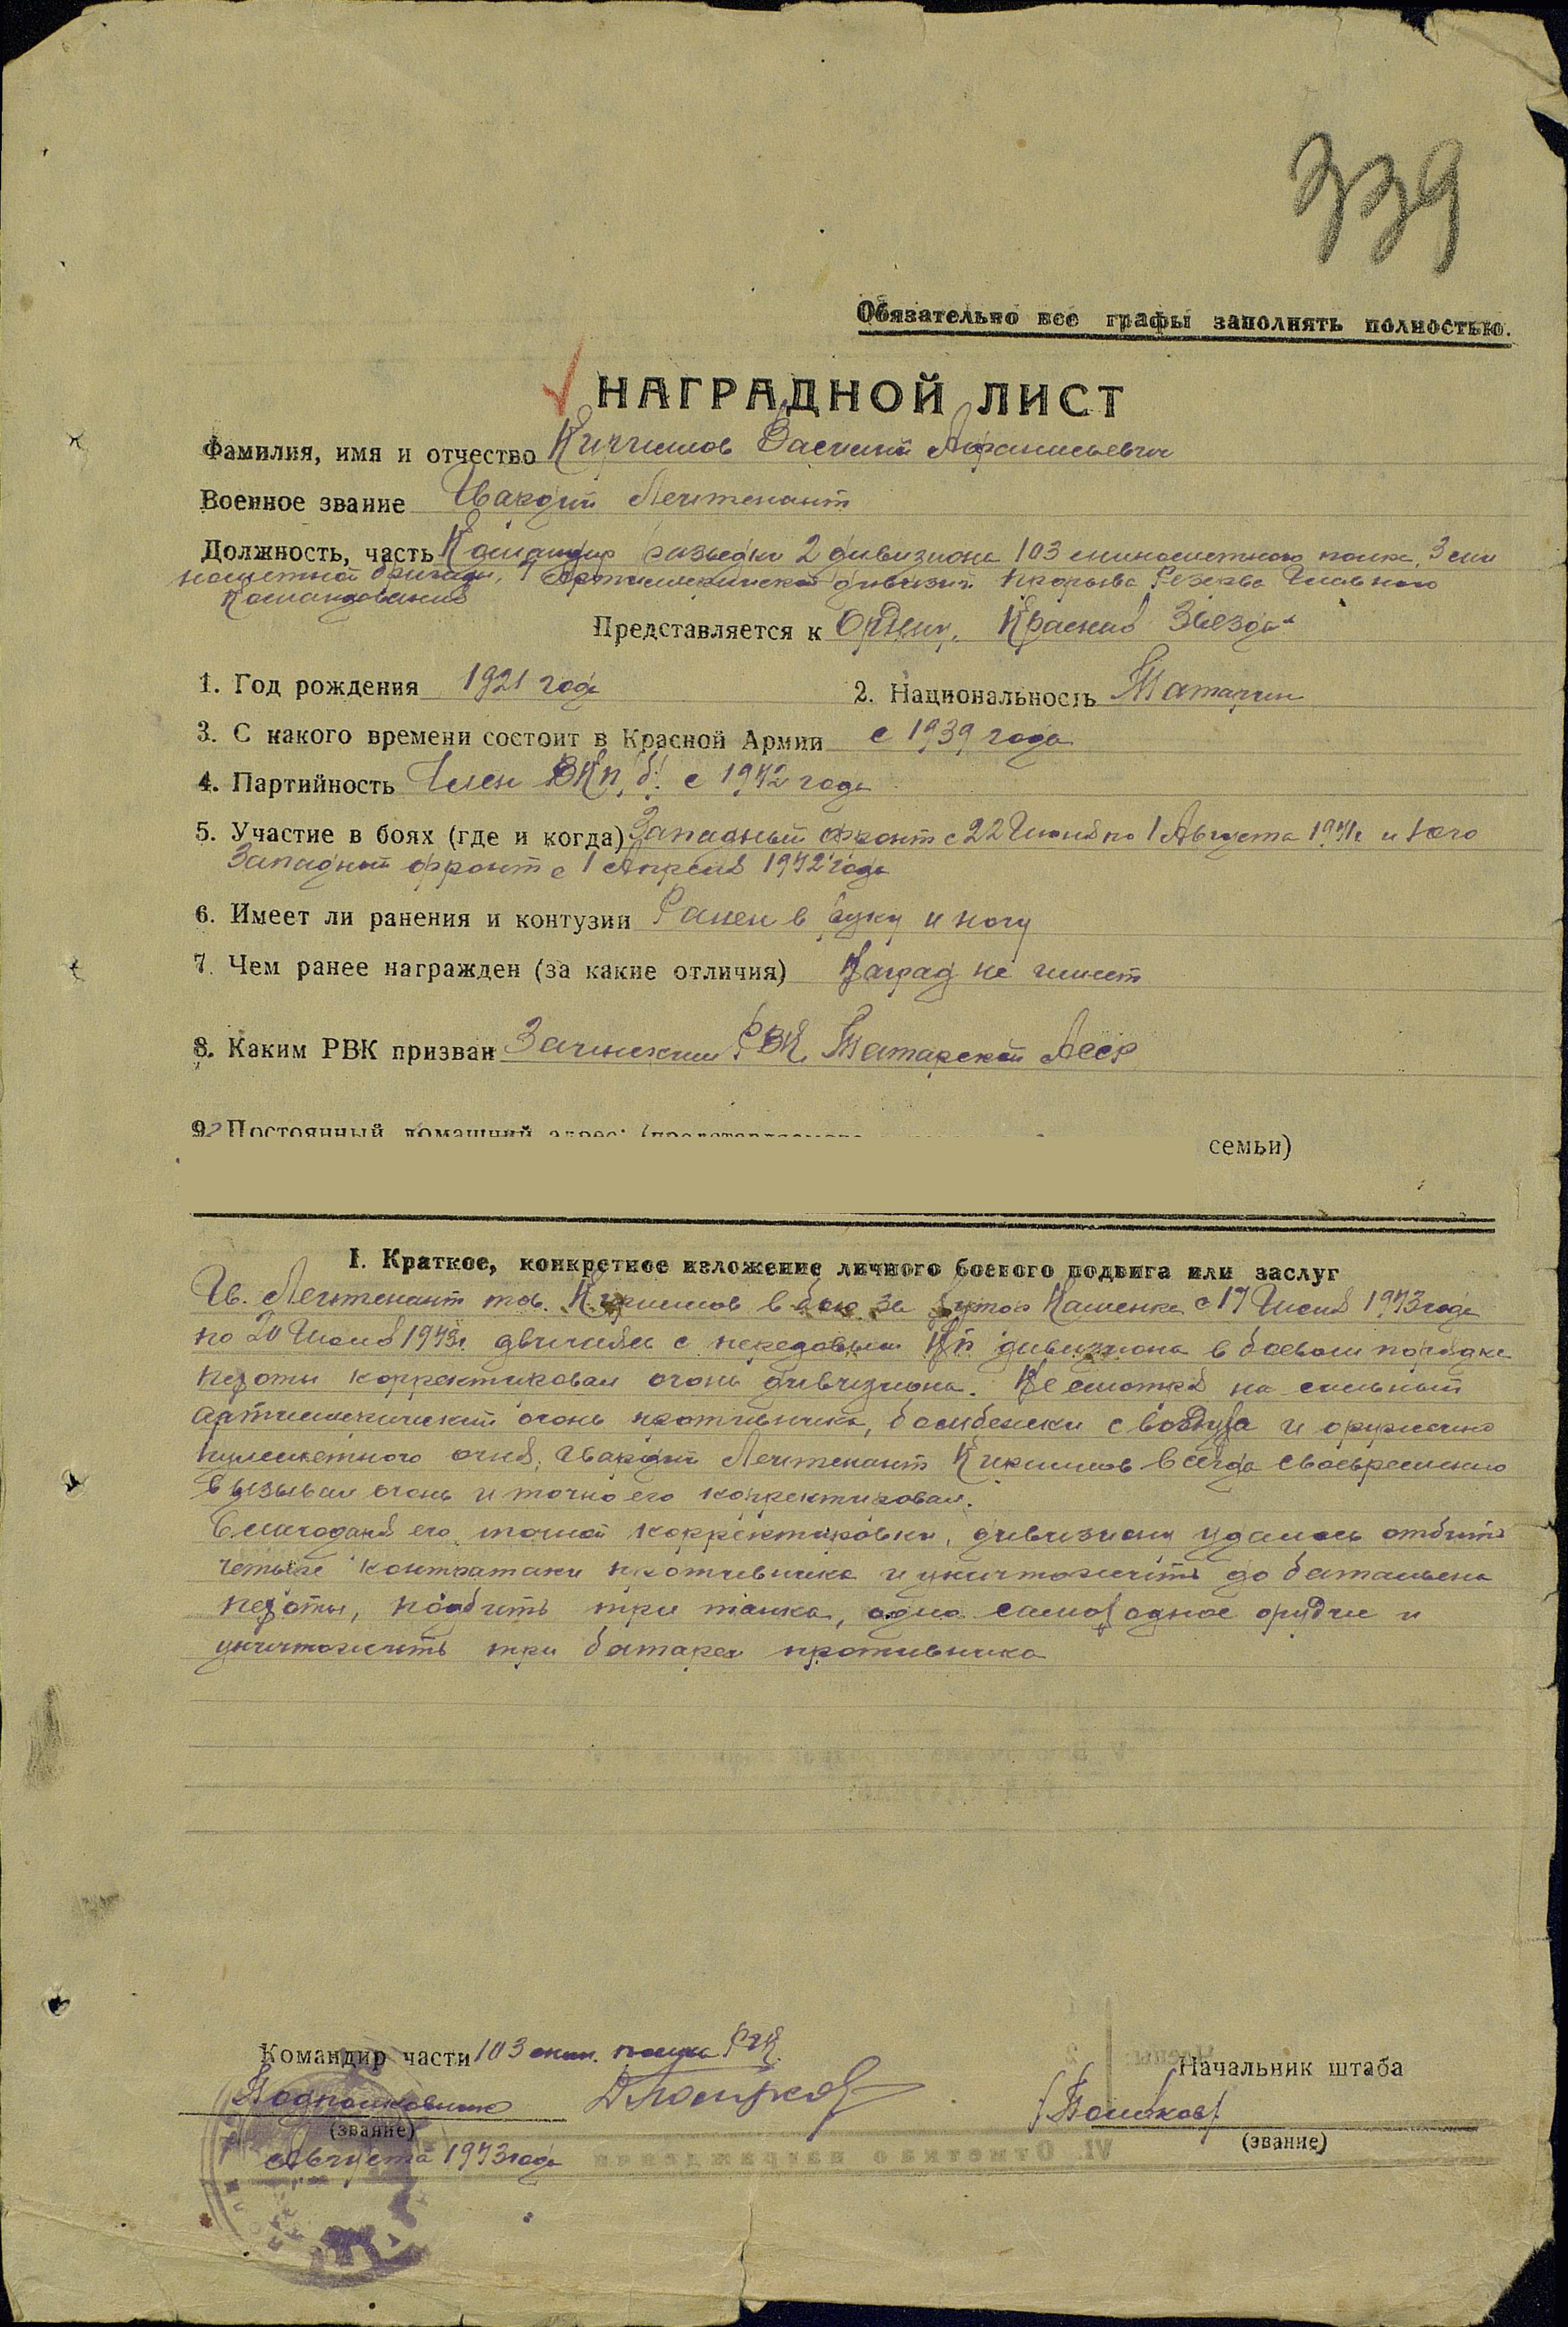 339
Обязательно все графы заполнять полностью.
НАГРАДНОЙ ЛИСТ
Фамилия, имя и отчество Киримов Василий Афанасьевич
Военное звание Гвардий Лейтенант
Должность, часть Командир разведки 2 дивизиона 103 минометного полка, 3 ми
нометной бригады, 7 Артиллерийской дивизии прорыва Резерва Главного
Командования
Представляется к Ордену. Красная Звезда
1. Год рождения 1921 года 2. Национальность Татарин
3. С какого времени состоит в Красной Армии с 1939 года
4. Партийность Член ВКп,б. с 1942 года
5. Участие в боях (где и когда) Западный фронт с 22 Июня по 1 Августа 1941г и Юго
Западный фронт с 1 Апреля 1942 года
6. Имеет ли ранения и контузии Ранен в руку и ногу
7. Чем ранее награжден (за какие отличия) Наград не имеет
8. Каким РВК призван Заинским РВК, Татарской Асср
9. Постоянный домашний адрес: (представляемого семьи)
I. Краткое, конкретное изложение личного боевого подвига или заслуг
Гв. Лейтенант тов. Киримов в бою за хутор Каменка с 17 Июля 1943 года
по 20 Июля 1943г. двигаясь с передовым Нп дивизиона в боевом порядке
пехоты корректировал огонь дивизиона. Не смотря на сильный
артиллерический огонь противника, бомбежки с воздуха и оружейно
пулеметного огня, гвардий Лейтенант Киримов всегда своевременно
вызывал огонь и точно его корректировал.
Благодаря его точной корректировки, дивизиону удалось отбить
четыре контратаки противника и уничтожить до батальона
пехоты, подбить три танка, одно самоходное орудие и
уничтожить три батареи противника
Командир части 103 мин. полка РГК. Начальник штаба
Подполковник
(звание) (звание)
Августа 1943 года
VI. Отметка о награждении